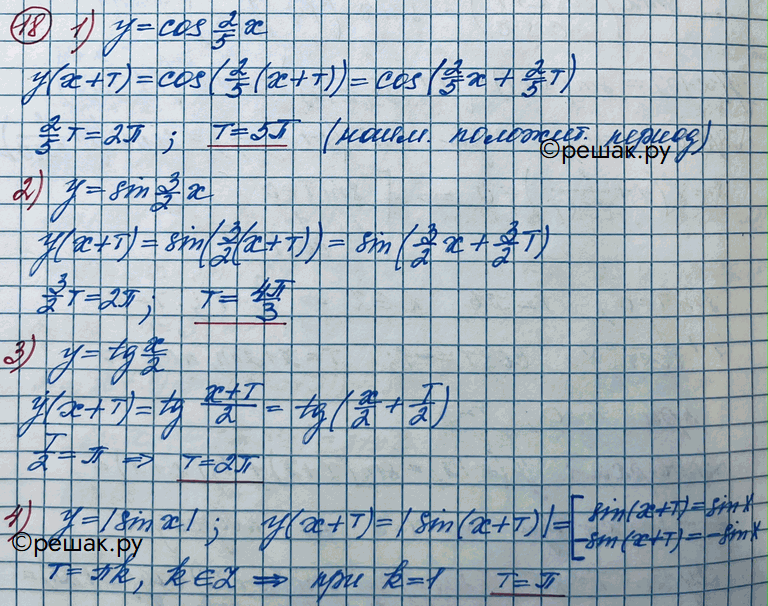 18 1) y = cos 2/5 x
y(x+T) = cos(2/5 (x+T)) = cos(2/5 x + 2/5 T)
2/5 T = 2π ; T = 5π (наим. положит. период)
©решак.ру
2) y = sin 3/2 x
y(x+T) = sin(3/2 (x+T)) = sin(3/2 x + 3/2 T)
3/2 T = 2π ; T = 4π/3
3) y = tg x/2
y(x+T) = tg (x+T)/2 = tg(x/2 + T/2)
T/2 = π ⇒ T = 2π
4) y = |sin x| ; y(x+T) = |sin(x+T)| = [ sin(x+T) = sin x
-sin(x+T) = -sin x
©решак.ру
T = πk, k ∈ Z ⇒ при k = 1 T = π